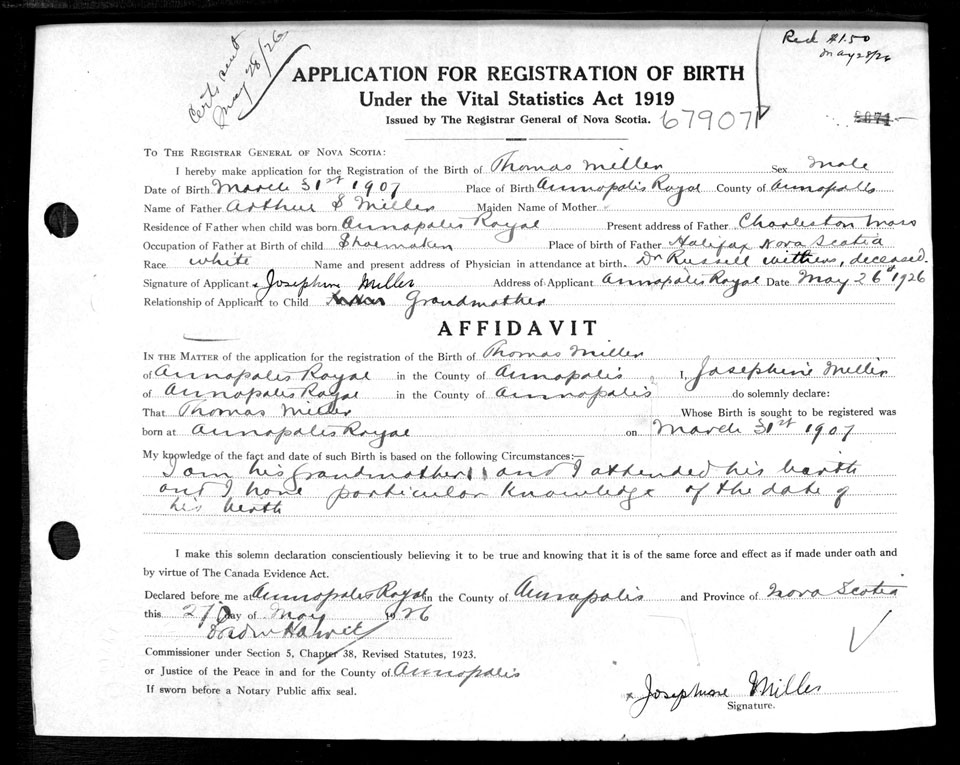 Certs sent
May 28/26
Recd $1.50
May 28/26
APPLICATION FOR REGISTRATION OF BIRTH
Under the Vital Statistics Act 1919
Issued by The Registrar General of Nova Scotia. 67907
TO THE REGISTRAR GENERAL OF NOVA SCOTIA:
I hereby make application for the Registration of the Birth of Thomas Miller Sex Male
Date of Birth March 31st 1907 Place of Birth Annapolis Royal County of Annapolis
Name of Father Arthur S Miller Maiden Name of Mother
Residence of Father when child was born Annapolis Royal Present address of Father Charleston Mass
Occupation of Father at Birth of child Shoemaker Place of birth of Father Halifax Nova Scotia
Race white Name and present address of Physician in attendance at birth. Dr Russell Withers, deceased.
Signature of Applicant x Josephine Miller Address of Applicant Annapolis Royal Date May 26th 1926
Relationship of Applicant to Child Grandmother
AFFIDAVIT
IN THE MATTER of the application for the registration of the Birth of Thomas Miller
of Annapolis Royal in the County of Annapolis I, Josephine Miller
of Annapolis Royal in the County of Annapolis do solemnly declare:
That Thomas Miller Whose Birth is sought to be registered was
born at Annapolis Royal on March 31st 1907
My knowledge of the fact and date of such Birth is based on the following Circumstances:—
I am his Grandmother and I attended his birth
and I have particular knowledge of the date of
his birth
I make this solemn declaration conscientiously believing it to be true and knowing that it is of the same force and effect as if made under oath and
by virtue of The Canada Evidence Act.
Declared before me at Annapolis Royal in the County of Annapolis and Province of Nova Scotia
this 27 day of May 1926
Commissioner under Section 5, Chapter 38, Revised Statutes, 1923.
or Justice of the Peace in and for the County of Annapolis
If sworn before a Notary Public affix seal.
x Josephine Miller
Signature.